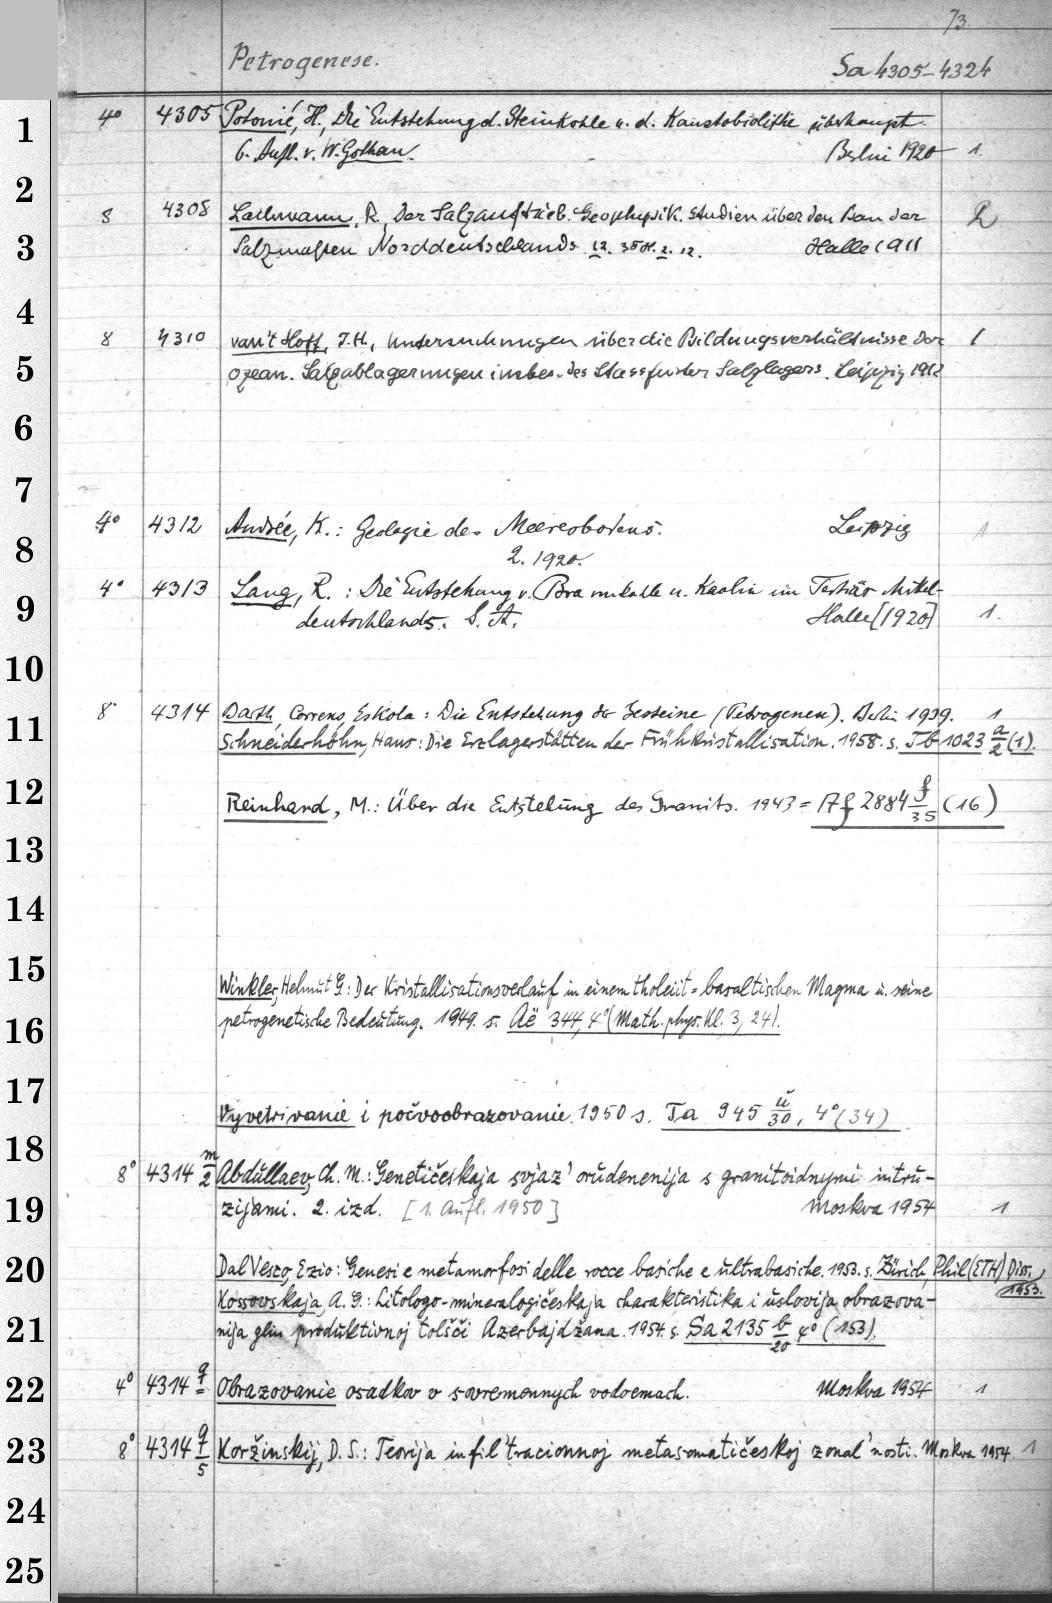 73.
Petrogenese. Sa 4305-4324
1 4° 4305 Potonié, H., Die Entstehung d. Steinkohle u. d. Kaustobiolithe überhaupt.
6. Aufl. v. W. Gothan. Berlin 1920 1.
2
8 4308 Lachmann, R., Der Salzauftrieb. Geophysik. Studien über den Bau der 2
3 Salzmassen Norddeutschlands Halle 1911
4
8 4310 van't Hoff, J.H., Untersuchungen über die Bildungsverhältnisse der 1
5 ozean. Salzablagerungen insbes. des Stassfurter Salzlagers. Leipzig 1912
6
7
4° 4312 Andrée, K.: Geologie des Meeresbodens. Leipzig 1
8 2. 1920.
4° 4313 Lang, R.: Die Entstehung v. Braunkohle u. Kaolin im Tertiär Mittel-
9 deutschlands. S. A. Halle [1920] 1.
10
8° 4314 Barth, Correns, Eskola: Die Entstehung der Gesteine (Petrogenese). Berlin 1939. 1
11 Schneiderhöhn, Hans: Die Erzlagerstätten der Frühkristallisation. 1958. s. Tb 1023 a/2 (1).
12 Reinhard, M.: Über die Entstehung des Granits. 1943 = Af 2884 f/35 (16)
13
14
15 Winkler, Helmut G.: Der Kristallisationsverlauf in einem tholeiit-basaltischen Magma u. seine
16 petrogenetische Bedeutung. 1949. s. Aë 344, 4° (Math. phys. Kl. 3, 24).
17 Vyvetrivanie i počvoobrazovanie. 1950 s. Ta 945 u/30, 4° (34)
18 8° 4314 m/2 Abdullaev, Ch. M.: Genetičeskaja svjaz' orudenenija s granitoidnymi intru-
19 zijami. 2. izd. [1. Aufl. 1950] Moskva 1954 1
20 Dal Vesco, Ezio: Genesi e metamorfosi delle rocce basiche e ultrabasiche. 1953. s. Zürich Phil (ETH) Diss. 1953.
Kossovskaja, A. G.: Litologo-mineralogičeskaja charakteristika i uslovija obrazova-
21 nija glin produktivnoj tolšči Azerbajdžana. 1954. s. Sa 2135 b/20 4° (153).
22 4° 4314 q Obrazovanie osadkov v sovremennych vodoemach. Moskva 1954 1
23 8° 4314 q/5 Koržinskij, D. S.: Teorija infil'tracionnoj metasomatičeskoj zonal'nosti. Moskva 1954. 1
24
25